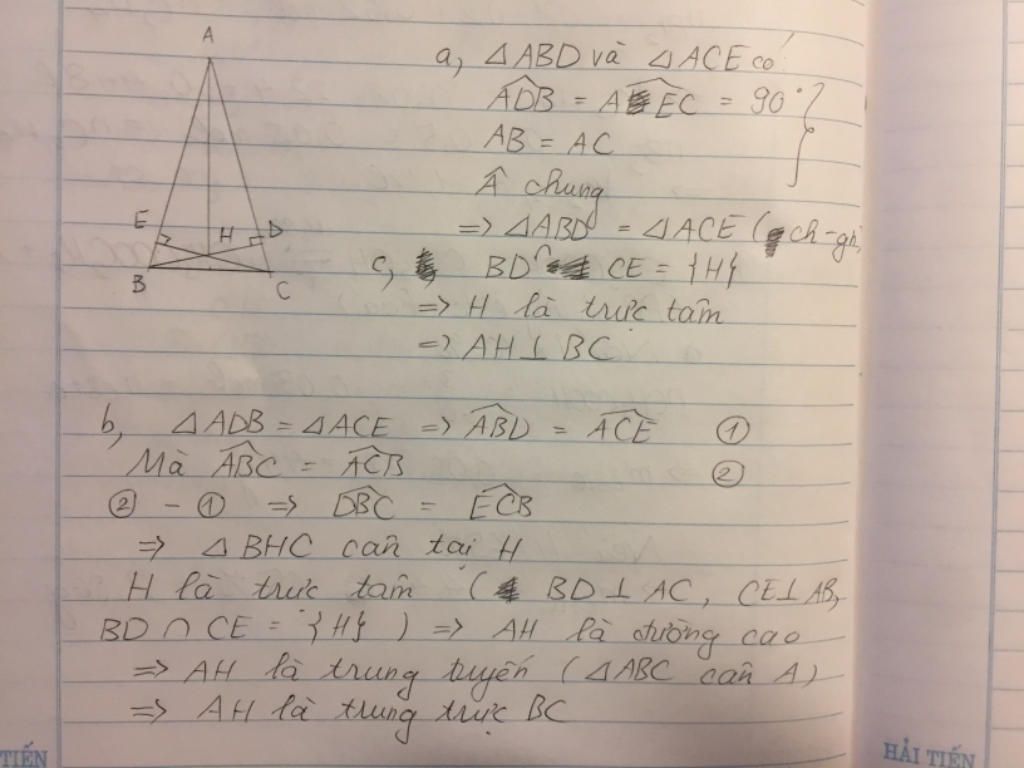 A
E
H
D
B
C
a, △ABD và △ACE có:
ADB = AEC = 90°
AB = AC
 chung
=> △ABD = △ACE (ch-gn)
c, BD ∩ CE = {H}
=> H là trực tâm
=> AH ⊥ BC
b, △ADB = △ACE => ABD = ACE ①
Mà ABC = ACB ②
② - ① => DBC = ECB
=> △BHC cân tại H
H là trực tâm ( BD ⊥ AC, CE ⊥ AB,
BD ∩ CE = {H} ) => AH là đường cao
=> AH là trung tuyến (△ABC cân A)
=> AH là trung trực BC
TIẾN
HẢI TIẾN